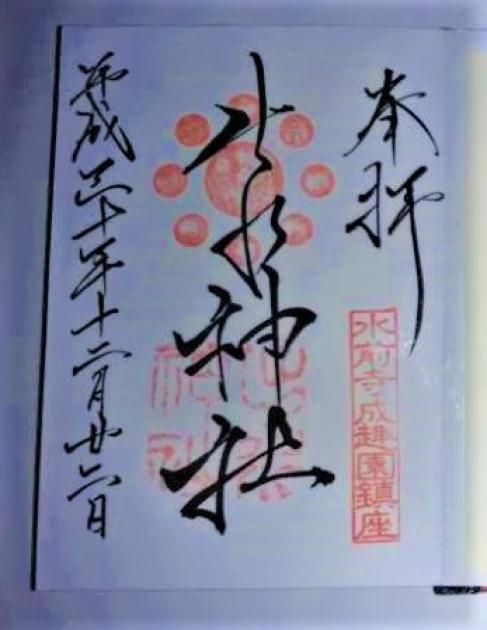 奉拝
水前寺成趣園鎮座
出水神社
平成三十年十二月廿六日